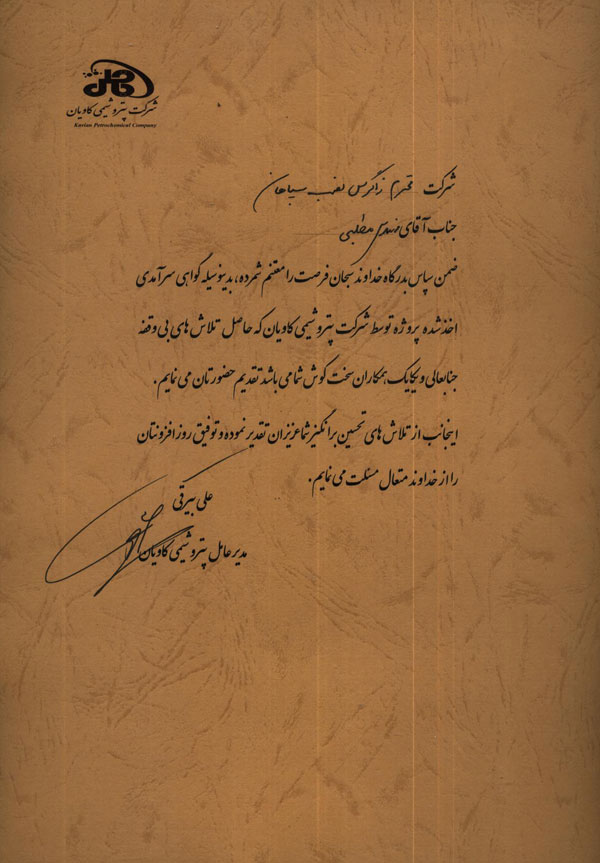 شرکت پتروشیمی کاویان
Kavian Petrochemical Company
شرکت محترم زاگرس نصب سپاهان
جناب آقای مهندس مطلبی
ضمن سپاس بدرگاه خداوند سبحان فرصت را مغتنم شمرده، بدینوسیله گواهی سرآمدی
اخذ شده پروژه توسط شرکت پتروشیمی کاویان که حاصل تلاش های بی وقفه
جنابعالی و یکایک همکاران سخت کوش شما می باشد تقدیم حضورتان می نمایم.
اینجانب از تلاش های تحسین برانگیز شما عزیزان تقدیر نموده و توفیق روز افزونتان
را از خداوند متعال مسئلت می نمایم.
علی بیرقی
مدیر عامل پتروشیمی کاویان